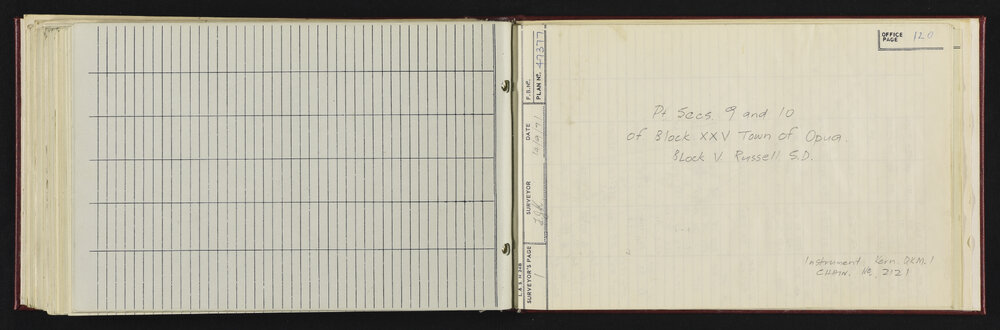 OFFICE PAGE 120
Pt Secs. 9 and 10
of Block XXV Town of Opua.
Block V Russell S.D.
Instrument Kern. DKM. 1
CHAIN. No. 2121
L. & S. H 24B
SURVEYOR'S PAGE 1
SURVEYOR
DATE 10/9/71
F.B. No.
PLAN No. 47377